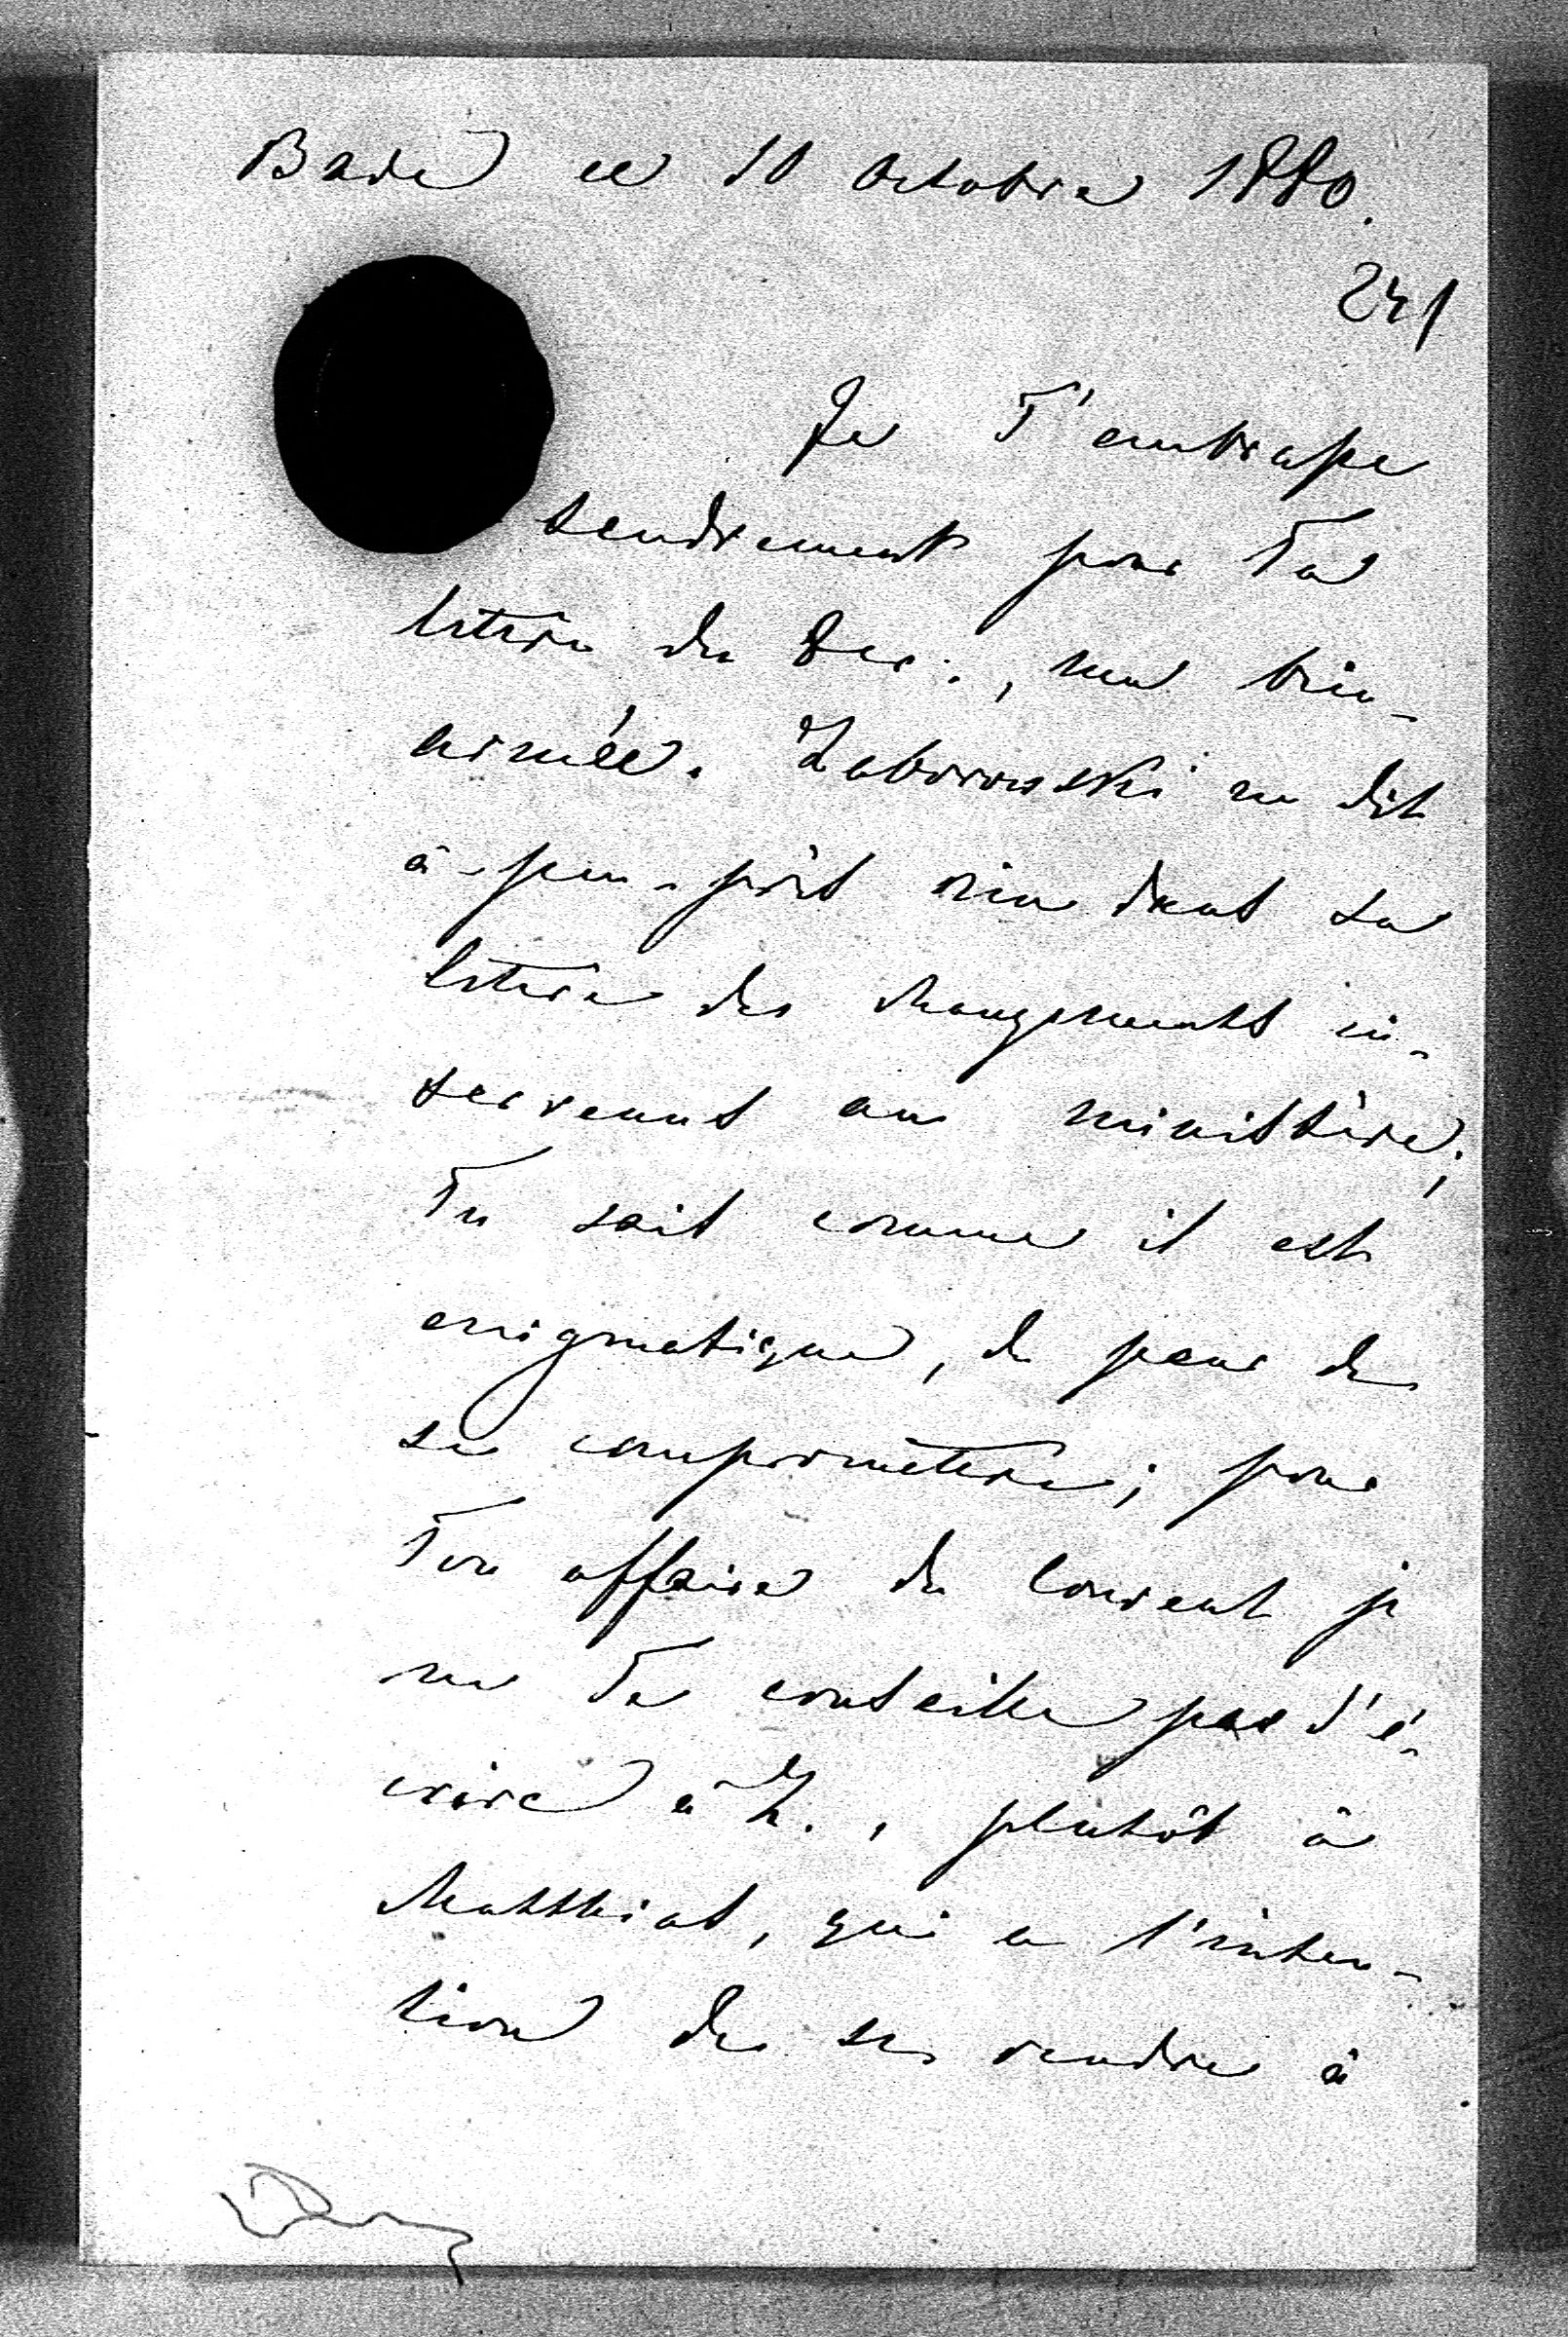 Bade ce 10 Octobre 1880.
241
Je T'embrasse
tendrement pour Ta
lettre du 8 ec:, ma bien-
aimée. Zaborowski ne dit
à-peu-près rien dans sa
lettre des changements in-
tervenus au ministère;
Tu sais comme il est
enigmatique, de peur de
se compromettre; pour
Ton affaire du couvent je
ne Te conseille pas d'é-
crire à Z., plutôt à
Matthias, qui a l'inten-
tion de se rendre à